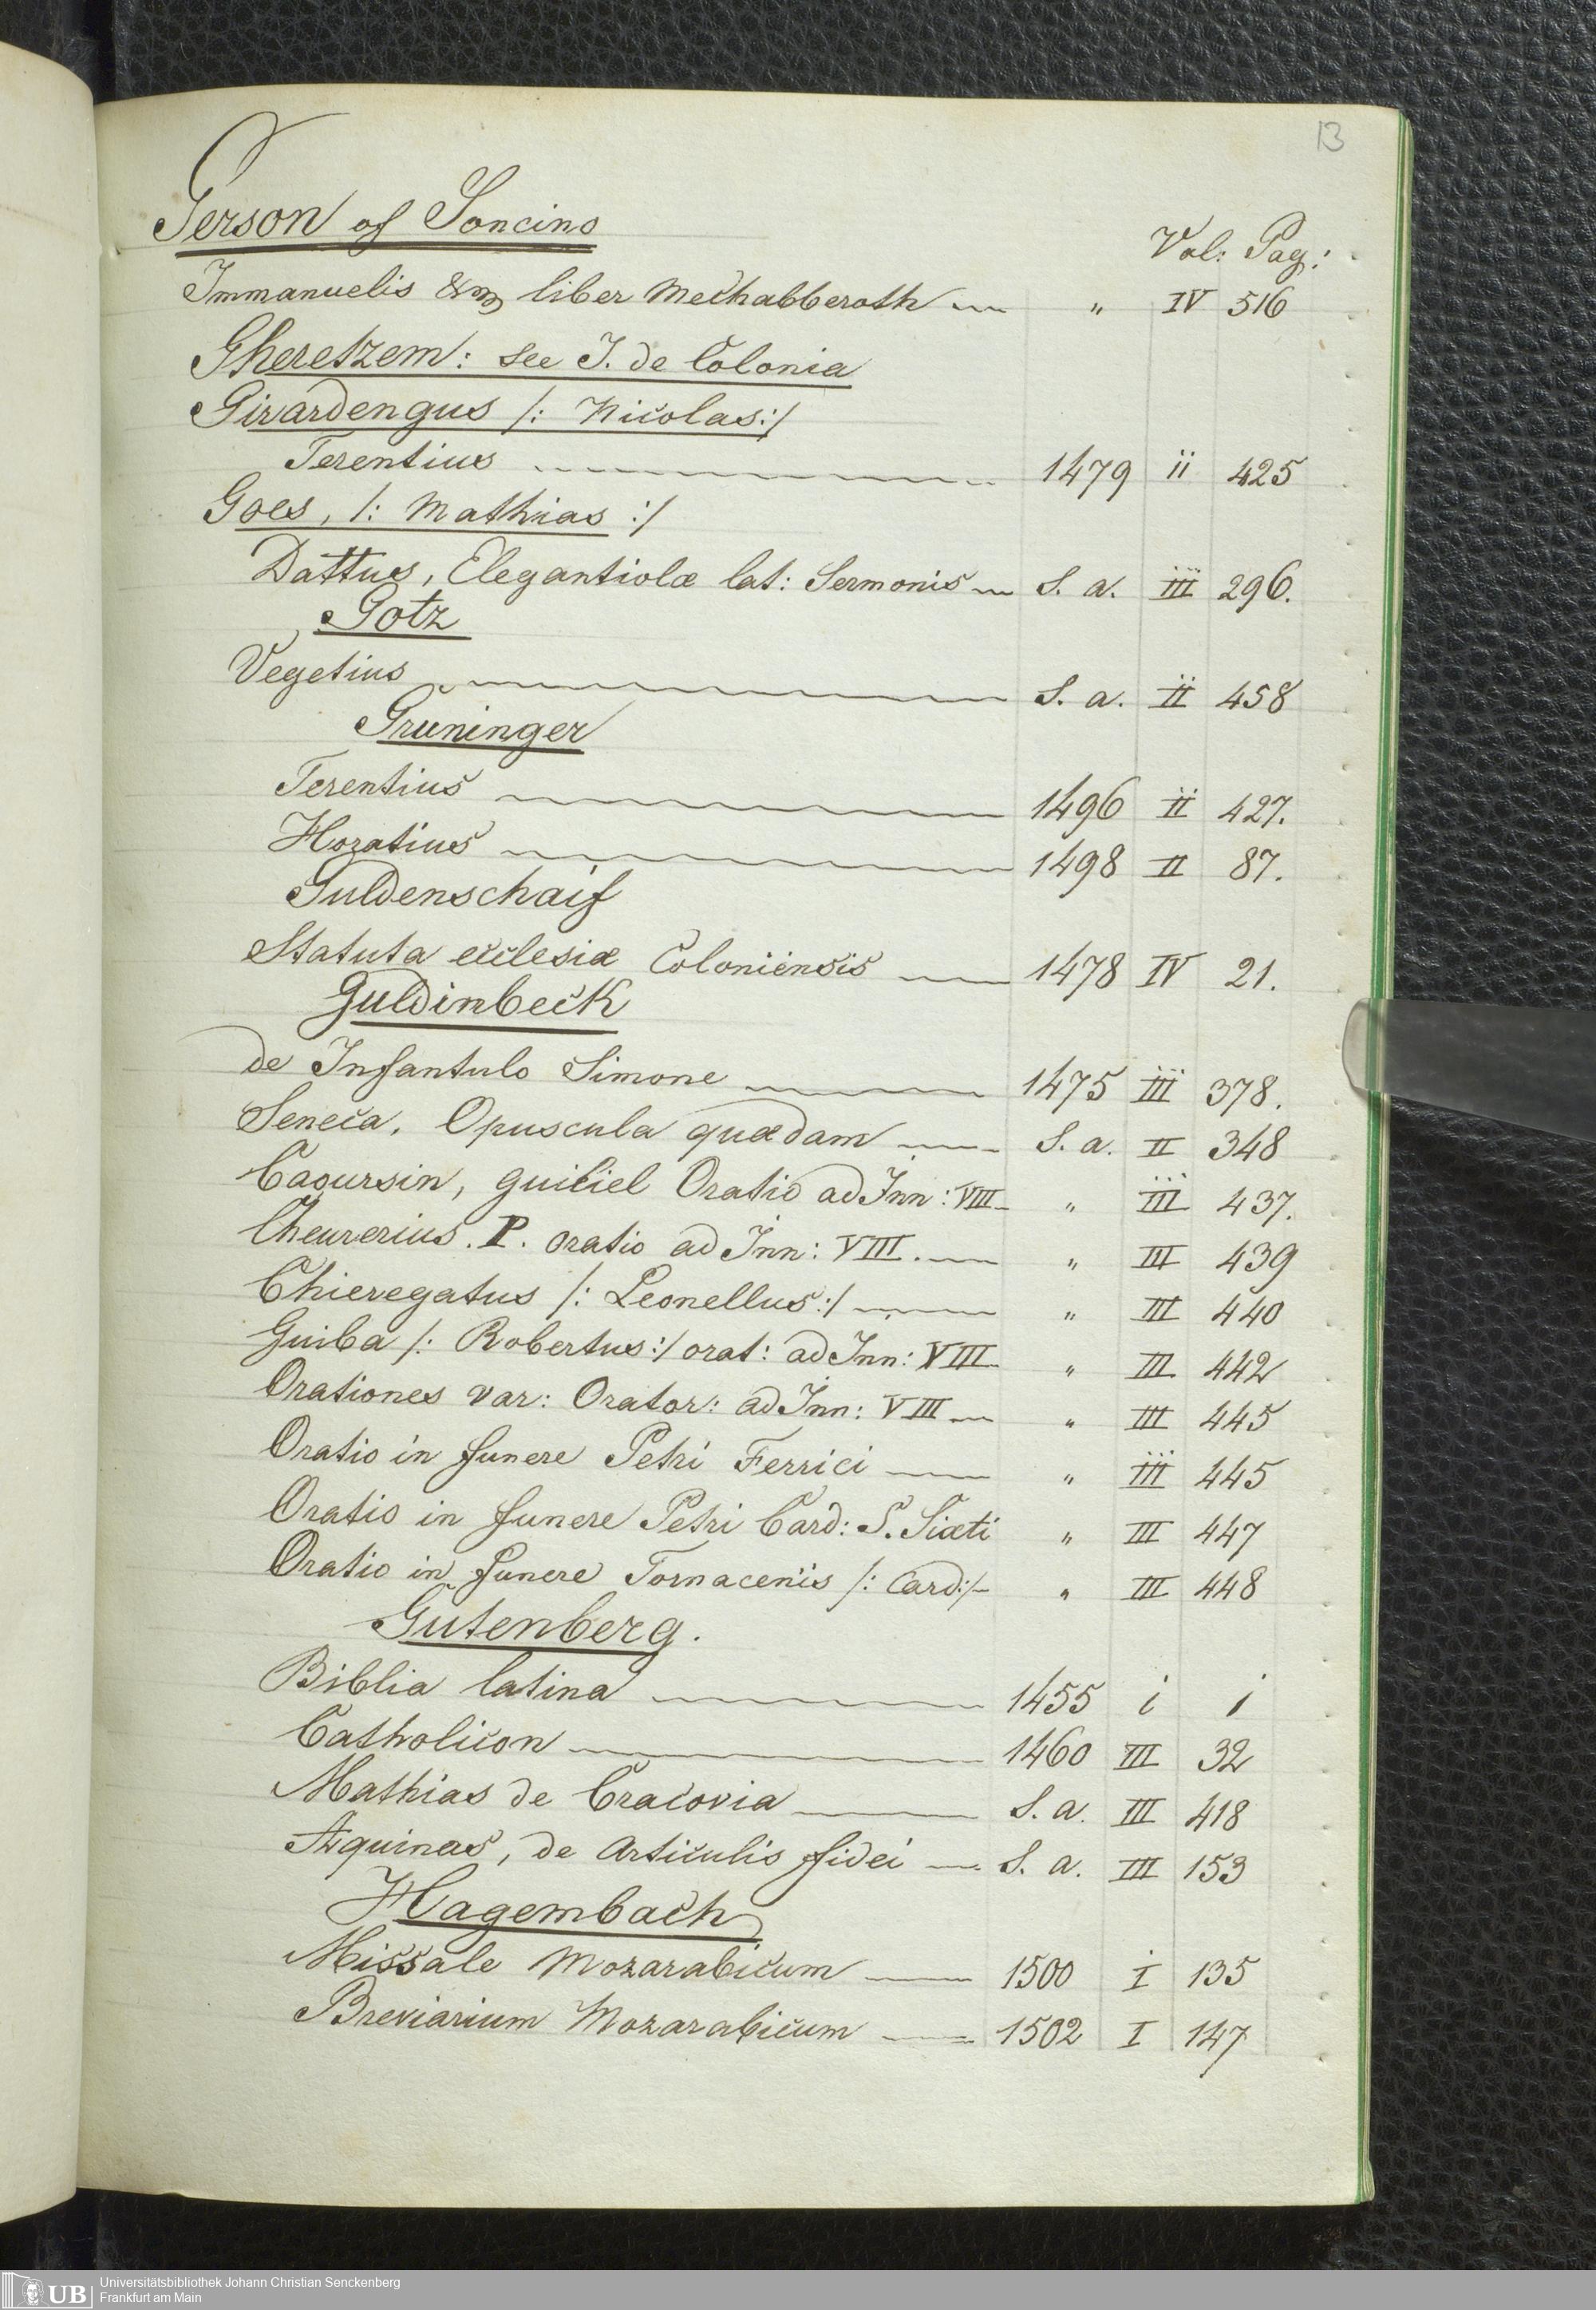 13
Gerson of Soncino
Vol: Pag:
Immanuelis liber Mechabberoth — " IV 516
Gheretzem: see J. de Colonia
Girardengus /: Nicolas:/
Terentius — 1479 ii 425
Goes, /: Mathias :/
Dattus, Elegantiolæ lat: Sermonis — S. a. III 296.
Gotz
Vegetius — S. a. II 458
Gruninger
Terentius — 1496 II 427.
Horatius — 1498 II 87.
Guldenschaif
Statuta ecclesiæ Coloniensis — 1478 IV 21.
Guldinbeck
de Infantulo Simone — 1475 III 378.
Seneca, Opuscula quædam — S. a. II 348
Caoursin, guiliel Oratio ad Inn: VIII — " III 437.
Cheurerius. P. oratio ad Inn: VIII. — " III 439
Chieregatus /: Leonellus:/ — " III 440
Guiba /: Robertus:/ orat: ad Inn: VIII — " III 442
Orationes var: Orator: ad Inn: VIII — " III 445
Oratio in funere Petri Ferrici — " III 445
Oratio in funere Petri Card: S. Sixti " III 447
Oratio in funere Tornacenis /: Card:/ — " III 448
Gutenberg.
Biblia latina — 1455 i i
Catholicon — 1460 III 32
Mathias de Cracovia — S. a. III 418
Aquinas, de Articulis fidei — S. a. III 153
Hagembach
Missale Mozarabicum — 1500 I 135
Breviarium Mozarabicum — 1502 I 147
UB Universitätsbibliothek Johann Christian Senckenberg
Frankfurt am Main